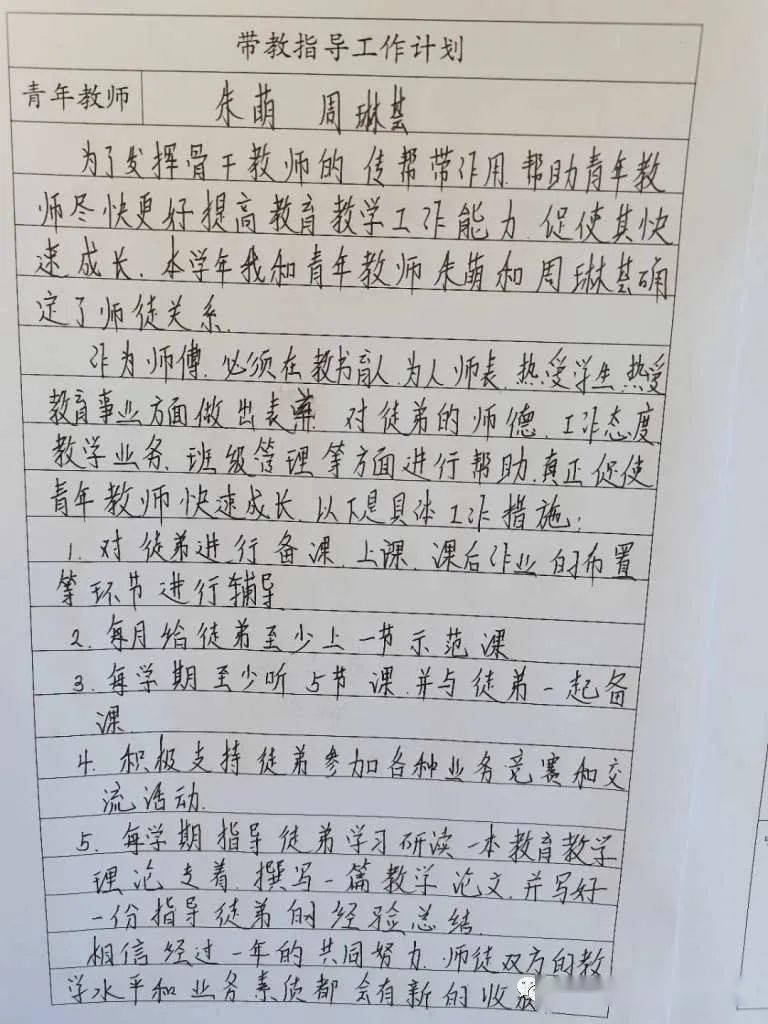 带教指导工作计划
青年教师 朱萌 周琳芸
为了发挥骨干教师的传帮带作用.帮助青年教
师尽快更好提高教育教学工作能力.促使其快
速成长.本学年我和青年教师朱萌和周琳芸确
定了师徒关系.
作为师傅.必须在教书育人.为人师表.热爱学生.热爱
教育事业方面做出表率.对徒弟的师德.工作态度
教学业务.班级管理等方面进行帮助.真正促使
青年教师快速成长.以下是具体工作措施:
1.对徒弟进行备课.上课.课后作业的布置
等环节进行辅导
2.每月给徒弟至少上一节示范课
3.每学期至少听5节课.并与徒弟一起备
课.
4.积极支持徒弟参加各种业务竞赛和交
流活动.
5.每学期指导徒弟学习研读一本教育教学
理论专着.撰写一篇教学论文.并写好
一份指导徒弟的经验总结.
相信经过一年的共同努力.师徒双方的教
学水平和业务素质都会有新的收